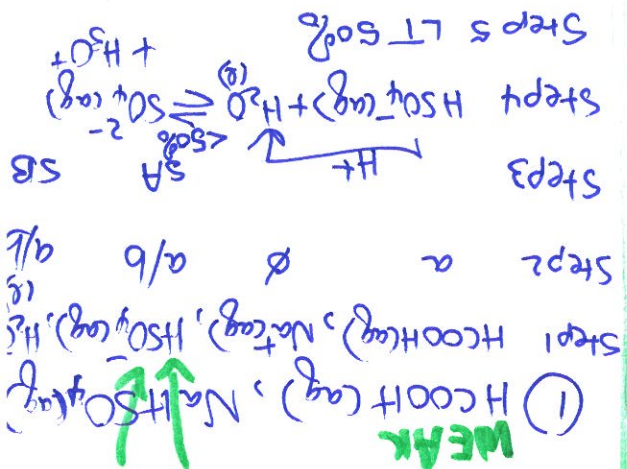 WEAK
① HCOOH(ag), NaHSO4(ag)
Step1 HCOOH(ag), Na+(ag), HSO4-(ag), H2O(l)
Step2 a ∅ a/b a/b
Step3 H+ SA SB
<50%
Step4 HSO4-(ag) + H2O(l) ⇌ SO4 2-(ag) + H3O+
Step5 LT 50%